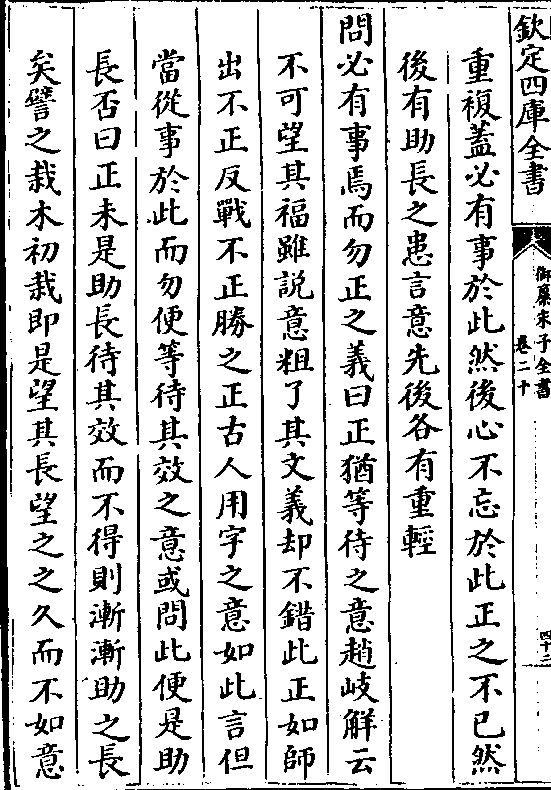 欽定四庫全書
御纂朱子全書
卷二十
四十三
重複蓋必有事於此然後心不忘於此正之不已然
後有助長之患言意先後各有重輕
問必有事焉而勿正之義曰正猶等待之意趙岐解云
不可望其福雖說意粗了其文義却不錯此正如師
出不正反戰不正勝之正古人用字之意如此言但
當從事於此而勿便等待其效之意或問此便是助
長否曰正未是助長待其效而不得則漸漸助之長
矣譬之栽木初栽即是望其長望之之久而不如意